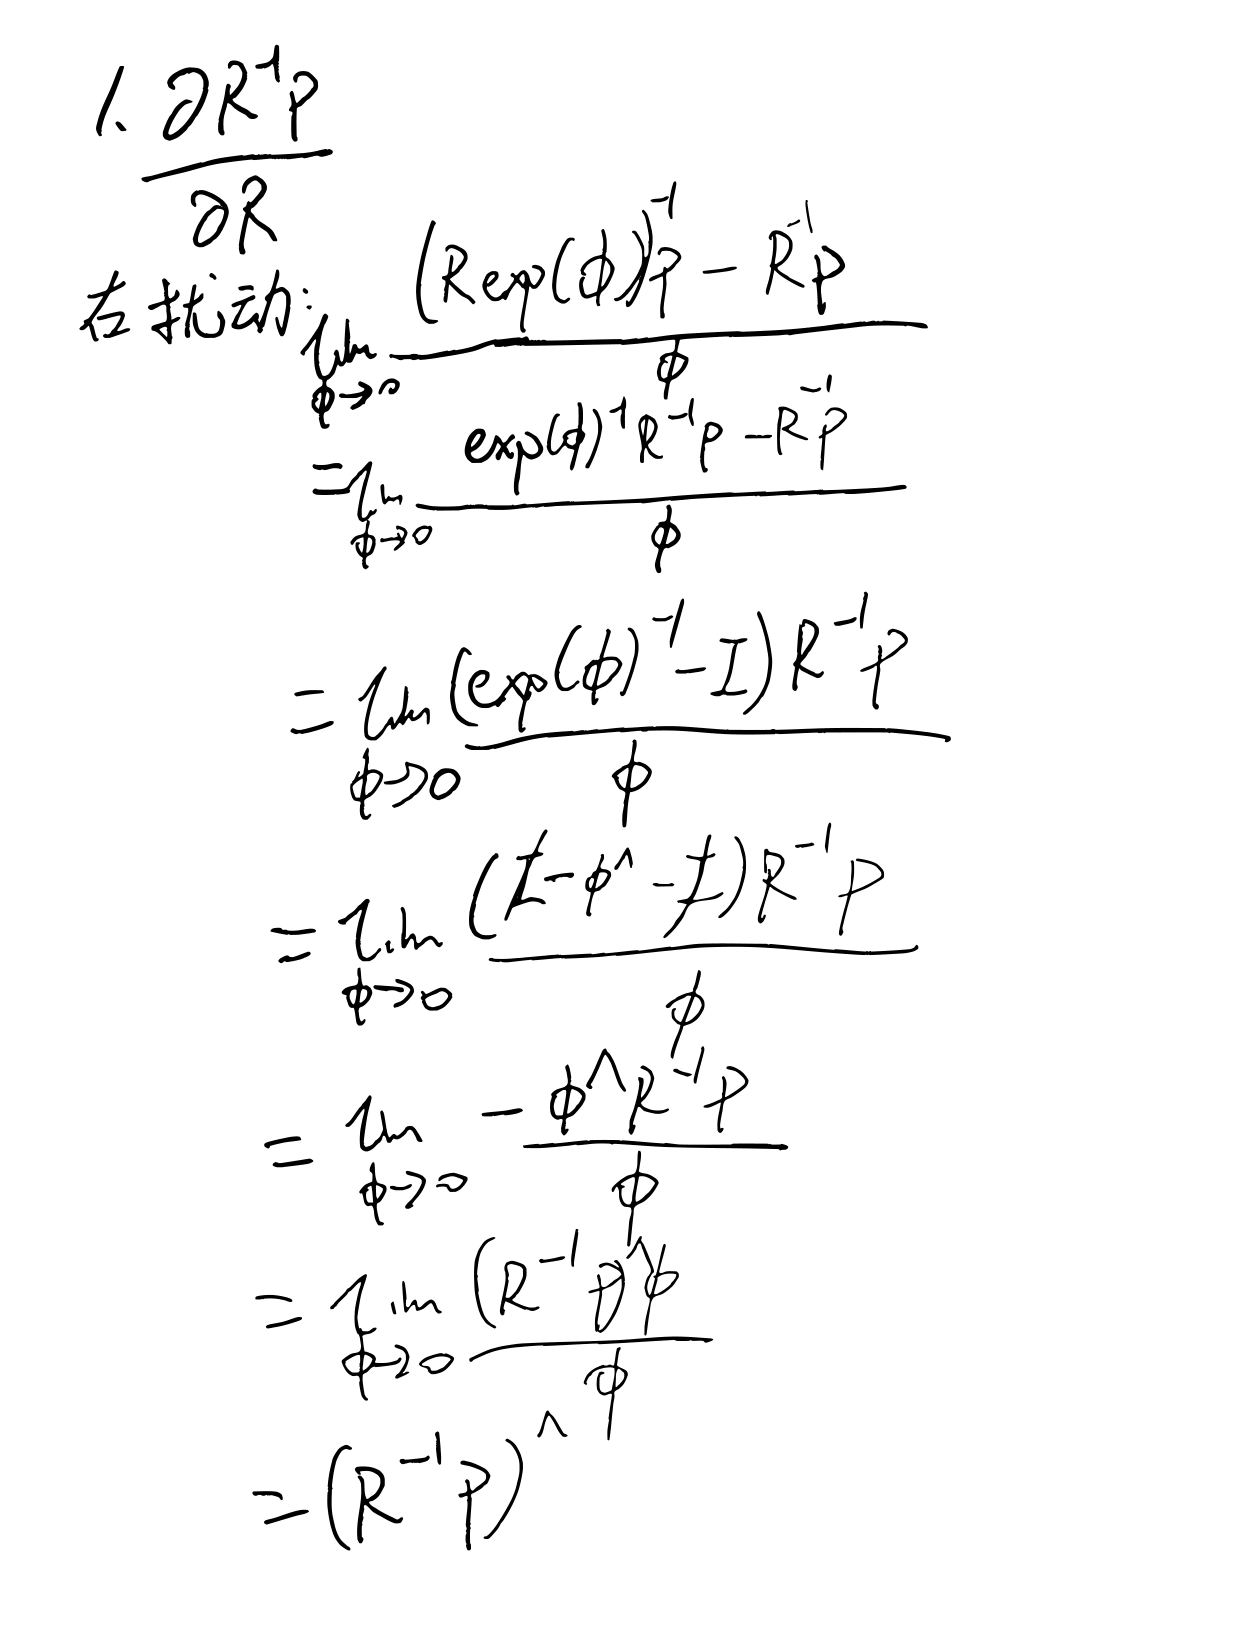 1. ∂R⁻¹p / ∂R
右扰动: lim_{φ→0} ((R exp(φ))⁻¹p − R⁻¹p) / φ
= lim_{φ→0} (exp(φ)⁻¹R⁻¹p − R⁻¹p) / φ
= lim_{φ→0} (exp(φ)⁻¹ − I)R⁻¹p / φ
= lim_{φ→0} (I − φ^ − I)R⁻¹p / φ
= lim_{φ→0} − φ^R⁻¹p / φ
= lim_{φ→0} (R⁻¹p)^φ / φ
= (R⁻¹p)^